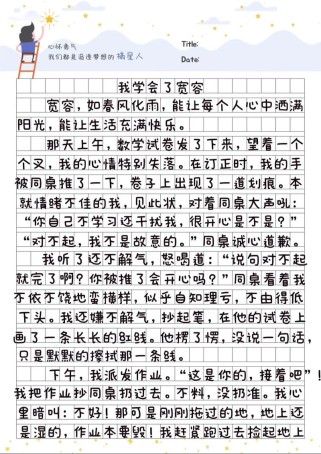 心怀勇气
我们都是追逐梦想的 摘星人
Title:
Date:
我学会了宽容
宽容，如春风化雨，能让每个人心中洒满
阳光，能让生活充满快乐。
那天上午，数学试卷发了下来，望着一个
个叉，我的心情特别失落。在订正时，我的手
被同桌推了一下，卷子上出现了一道划痕。本
就情绪不佳的我，见此状，对着同桌大声吼：
“你自己不学习还干扰我，很开心是不是？”
“对不起，我不是故意的。”同桌诚心道歉。
我听了还不解气，怒喝道：“说句对不起
就完了啊？你被推了会开心吗？”同桌看着我
不依不饶地蛮横样，似乎自知理亏，不由得低
下头。我还嫌不解气，抄起笔，在他的试卷上
画了一条长长的红线。他愣了愣，没说一句话，
只是默默的擦拭那一条线。
下午，我派发作业。“这是你的，接着吧”！
我把作业抄同桌扔过去。不料，没扔准。我心
里暗叫：不好！那可是刚刚拖过的地，地上还
是湿的，作业本要毁！我赶紧跑过去捡起地上